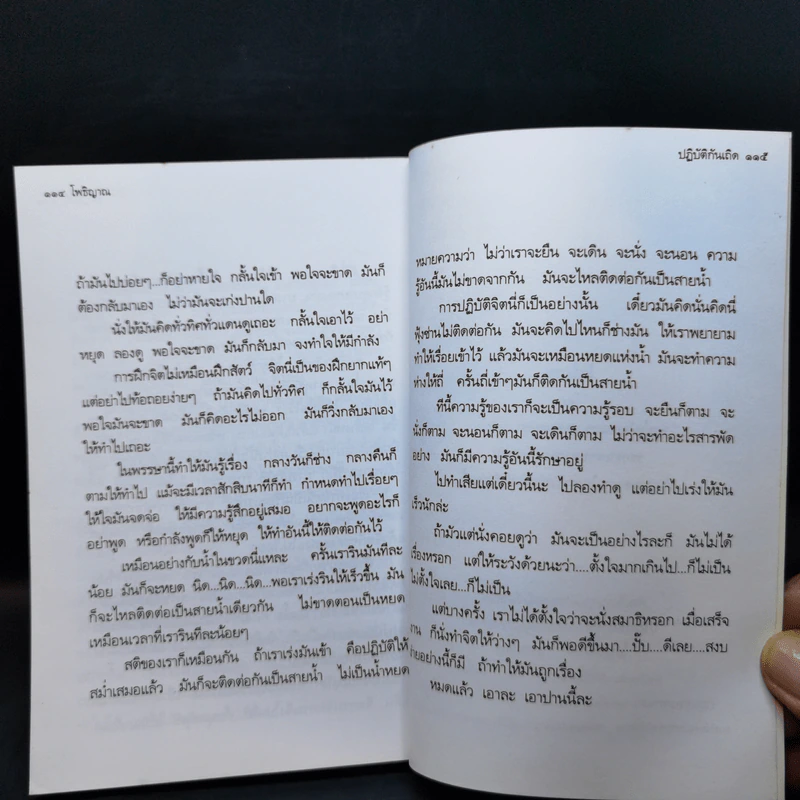 ๑๑๔ โพธิญาณ
ถ้ามันไปบ่อยๆ...ก็อย่าหายใจ กลั้นใจเข้า พอใจจะขาด มันก็
ต้องกลับมาเอง ไม่ว่ามันจะเก่งปานใด
นั่งให้มันคิดทั่วทิศทั่วแดนดูเถอะ กลั้นใจเอาไว้ อย่า
หยุด ลองดู พอใจจะขาด มันก็กลับมา จงทำใจให้มีกำลัง
การฝึกจิตไม่เหมือนฝึกสัตว์ จิตนี่เป็นของฝึกยากแท้ๆ
แต่อย่าไปท้อถอยง่ายๆ ถ้ามันคิดไปทั่วทิศ ก็กลั้นใจมันไว้
พอใจมันจะขาด มันก็คิดอะไรไม่ออก มันก็วิ่งกลับมาเอง
ให้ทำไปเถอะ
ในพรรษานี้ทำให้มันรู้เรื่อง กลางวันก็ช่าง กลางคืนก็
ตามให้ทำไป แม้จะมีเวลาสักสิบนาทีก็ทำ กำหนดทำไปเรื่อยๆ
ให้ใจมันจดจ่อ ให้มีความรู้สึกอยู่เสมอ อยากจะพูดอะไรก็
อย่าพูด หรือกำลังพูดก็ให้หยุด ให้ทำอันนี้ให้ติดต่อกันไว้
เหมือนอย่างกับน้ำในขวดนี่แหละ ครั้นเรารินมันทีละ
น้อย มันก็จะหยด นิด...นิด...นิด...พอเราเร่งรินให้เร็วขึ้น มัน
ก็จะไหลติดต่อเป็นสายน้ำเดียวกัน ไม่ขาดตอนเป็นหยด
เหมือนเวลาที่เรารินทีละน้อยๆ
สติของเราก็เหมือนกัน ถ้าเราเร่งมันเข้า คือปฏิบัติให้
สม่ำเสมอแล้ว มันก็จะติดต่อกันเป็นสายน้ำ ไม่เป็นน้ำหยด
ปฏิบัติกันเถิด ๑๑๕
หมายความว่า ไม่ว่าเราจะยืน จะเดิน จะนั่ง จะนอน ความ
รู้อันนี้มันไม่ขาดจากกัน มันจะไหลติดต่อกันเป็นสายน้ำ
การปฏิบัติจิตนี่ก็เป็นอย่างนั้น เดี๋ยวมันคิดนั่นคิดนี่
ฟุ้งซ่านไม่ติดต่อกัน มันจะคิดไปไหนก็ช่างมัน ให้เราพยายาม
ทำให้เรื่อยเข้าไว้ แล้วมันจะเหมือนหยดแห่งน้ำ มันจะทำความ
ห่างให้ถี่ ครั้นถี่เข้าๆมันก็ติดกันเป็นสายน้ำ
ทีนี้ความรู้ของเราก็จะเป็นความรู้รอบ จะยืนก็ตาม จะ
นั่งก็ตาม จะนอนก็ตาม จะเดินก็ตาม ไม่ว่าจะทำอะไรสารพัด
อย่าง มันก็มีความรู้อันนี้รักษาอยู่
ไปทำเสียแต่เดี๋ยวนี้นะ ไปลองทำดู แต่อย่าไปเร่งให้มัน
เร็วนักล่ะ
ถ้ามัวแต่นั่งคอยดูว่า มันจะเป็นอย่างไรละก็ มันไม่ได้
เรื่องหรอก แต่ให้ระวังด้วยนะว่า....ตั้งใจมากเกินไป...ก็ไม่เป็น
ไม่ตั้งใจเลย...ก็ไม่เป็น
แต่บางครั้ง เราไม่ได้ตั้งใจว่าจะนั่งสมาธิหรอก เมื่อเสร็จ
งาน ก็นั่งทำจิตให้ว่างๆ มันก็พอดีขึ้นมา....ปั๊บ....ดีเลย....สงบ
ง่ายอย่างนี้ก็มี ถ้าทำให้มันถูกเรื่อง
หมดแล้ว เอาละ เอาปานนี้ละ